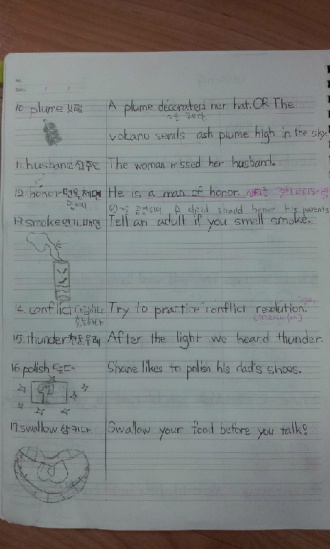 10. plume 깃털 A plume decorated her hat. OR The
volcano sends ash plume high in the sky.
11. husband 남편 The woman kissed her husband.
12. honor He is a man of honor
A child should honor his parents
13. smoke 연기 Tell an adult if you smell smoke.
14. conflict Try to practice conflict resolution.
15. thunder After the light we heard thunder.
16. polish Shane likes to polish his dad's shoes.
17. swallow 삼키다 Swallow your food before you talk!